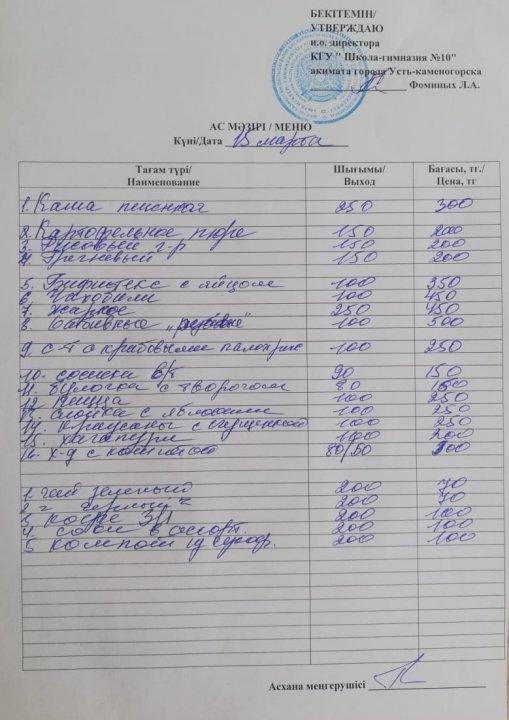 БЕКІТЕМІН/
УТВЕРЖДАЮ
и.о. директора
КГУ " Школа-гимназия №10"
акимата города Усть-каменогорска
Фоминых Л.А.
АС МӘЗІРІ / МЕНЮ
Күні/Дата 15 марта
Тағам түрі/ Шығымы/ Бағасы, тг./
Наименование Выход Цена, тг
1. Каша пшенная 250 300
2. Картофельное пюре 150 200
3. Рисовый г-р 150 200
4. Гречневый 150 200
5. Бифштекс с яйцом 100 350
6. Чахобили 100 450
7. Жаркое 250 450
8. Битивные 100 500
9. с-т с крабовыми палочк 100 250
10. сосиски в/к 90 150
11. Булочка с творогом 80
12. Пицца 100 250
13. Слойка с яблоками 100 250
14. Круасаны с сгущенкой 100 250
15. хачапури 100 200
16. х-д с котлетой 80/50 300
1. чай зеленый 200 70
2 " черный " 200 70
3 кофе 3/1 200 100
4. соки в асорт. 200 100
5 компот 200 100
Асхана меңгерушісі